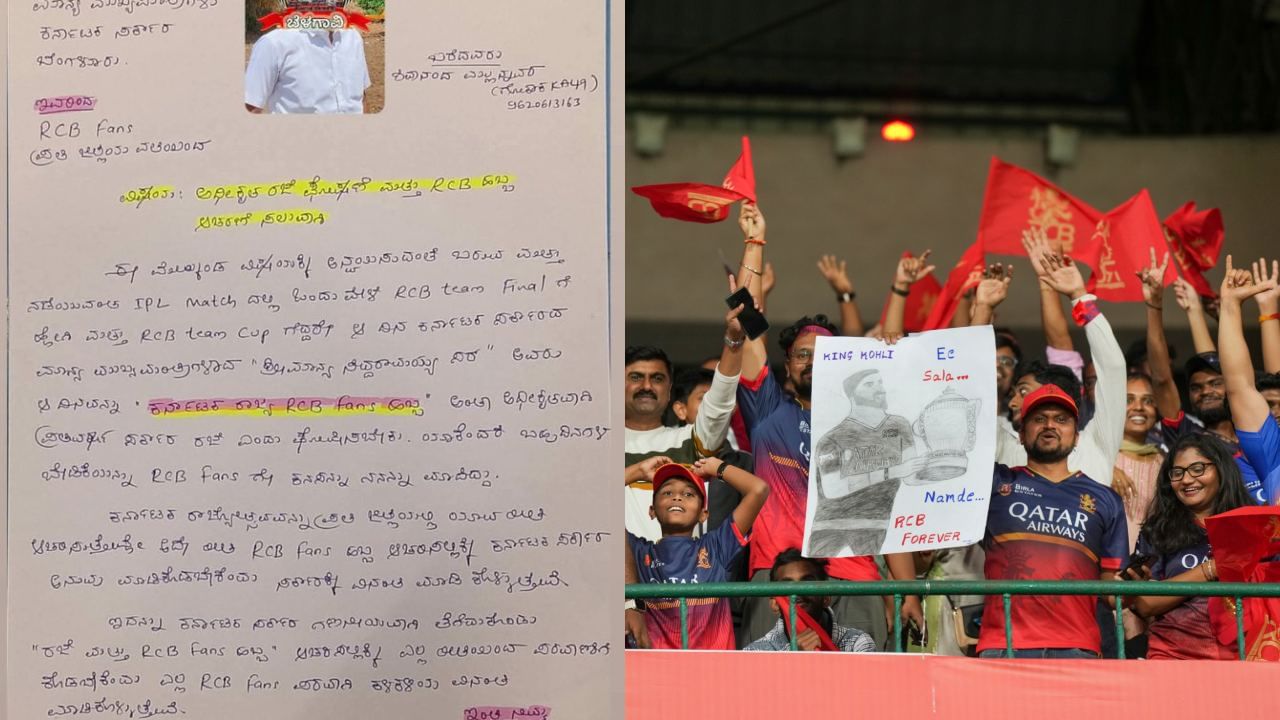 ಮಾನ್ಯ ಮುಖ್ಯಮಂತ್ರಿಗಳು
ಕರ್ನಾಟಕ ಸರ್ಕಾರ
ಬೆಂಗಳೂರು.
ಬೆಳಗಾವಿ
ಬರೆದವರು
ಶಿವಾನಂದ ಮಲ್ಲನ್ನವರ
(ಗೋಕಾಕ KA49)
9620613163
ಇವರಿಂದ
RCB Fans
ಪ್ರತಿ ಜಿಲ್ಲೆಯ ವತಿಯಿಂದ
ವಿಷಯ: ಅಧೀಕೃತ ರಜೆ ಘೋಷಣೆ ಮತ್ತು RCB ಹಬ್ಬ
ಆಚರಣೆ ಸಲುವಾಗಿ
ಈ ಮೇಲ್ಕಂಡ ವಿಷಯಕ್ಕೆ ಅನ್ವಯಿಸುವಂತೆ ಬರುವ ಮತ್ತು
ನಡೆಯುವಂತ IPL Match ದಲ್ಲಿ ಒಂದು ವೇಳೆ RCB team Final ಗೆ
ಹೋಗಿ ಮತ್ತು RCB team Cup ಗೆದ್ದರೇ ಆ ದಿನ ಕರ್ನಾಟಕ ಸರ್ಕಾರದ
ಮಾನ್ಯ ಮುಖ್ಯಮಂತ್ರಿಗಳಾದ "ಶ್ರೀ ಮಾನ್ಯ ಸಿದ್ದರಾಮಯ್ಯ ಸರ" ಅವರು
ಆ ದಿನವನ್ನು "ಕರ್ನಾಟಕ ರಾಜ್ಯ RCB fans ಹಬ್ಬ" ಅಂತಾ ಅಧೀಕೃತವಾಗಿ
ಪ್ರತಿವರ್ಷ ಸರ್ಕಾರ ರಜೆ ಎಂದು ಘೋಷಿಸಬೇಕು. ಯಾಕೆಂದರೆ ಬಹು ದಿನಗಳ
ಬೇಡಿಕೆಯನ್ನು RCB Fans ಗೇ ಕನಸನ್ನು ನನಸನ್ನು ಮಾಡಿದ್ದಾ.
ಕರ್ನಾಟಕ ರಾಜ್ಯೋತ್ಸವವನ್ನು ಪ್ರತಿ ಜಿಲ್ಲೆಯಲ್ಲಿ ಯಾವ ರೀತಿ
ಆಚರಿಸುತ್ತೇವೋ ಅದೇ ರೀತಿ RCB Fans ಹಬ್ಬ ಆಚರಿಸಲಿಕ್ಕೆ ಕರ್ನಾಟಕ ಸರ್ಕಾರ
ಅನುವು ಮಾಡಿಕೊಡಬೇಕೆಂದು ಸರ್ಕಾರಕ್ಕೆ ವಿನಂತಿ ಮಾಡಿ ಕೊಳ್ಳುತ್ತೇವೆ.
ಇದನ್ನು ಕರ್ನಾಟಕ ಸರ್ಕಾರ ಗಣನೀಯವಾಗಿ ತೆಗೆದುಕೊಂಡು
"ರಜೆ ಮತ್ತು RCB Fans ಹಬ್ಬ" ಆಚರಿಸಲಿಕ್ಕೆ ಎಲ್ಲ ರೀತಿಯಿಂದ
ಕೊಡಬೇಕೆಂದು ಎಲ್ಲ RCB Fans ಪರವಾಗಿ ಕಳಕಳಿಯ ವಿನಂತಿ
ಮಾಡಿಕೊಳ್ಳುತ್ತೇವೆ.
ಇಂತಿ ನಿಮ್ಮ
KING KOHLI
Ee
Sala...
Namde...
RCB
FOREVER...
BIRLA
QATAR
AIRWAYS
QATAR
RCB